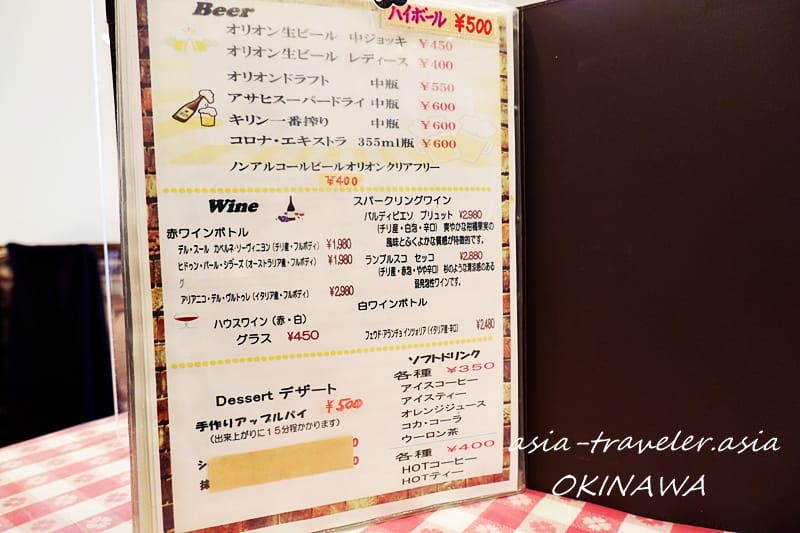 Beer
ハイボール ¥500
オリオン生ビール 中ジョッキ ¥450
オリオン生ビール レディース ¥400
オリオンドラフト 中瓶 ¥550
アサヒスーパードライ 中瓶 ¥600
キリン一番搾り 中瓶 ¥600
コロナ・エキストラ 355ml瓶 ¥600
ノンアルコールビールオリオンクリアフリー
¥400
Wine
赤ワインボトル
デル・スール カベルネ・ソーヴィニヨン（チリ産・フルボディ） ¥1,980
ヒドゥン・パール・シラーズ（オーストラリア産・フルボディ） ¥1,980
グ
アリアニコ・デル・ヴルトゥレ（イタリア産・フルボディ） ¥2,980
ハウスワイン（赤・白）
グラス ¥450
スパークリングワイン
バルディビエソ ブリュット ¥2,980
（チリ産・白泡・辛口） 爽やかな柑橘果実の
風味とふくよかな質感が特徴的です。
ランブルスコ セッコ ¥2,880
（チリ産・赤泡・やや辛口） 杉のような清涼感のある
弱発泡性ワインです。
白ワインボトル
フェウド・アランチョ インツォリア（イタリア産・辛口） ¥2,480
Dessert デザート
手作りアップルパイ ¥500
（出来上がりに15分程かかります）
ソフトドリンク
各種 ¥350
アイスコーヒー
アイスティー
オレンジジュース
コカ・コーラ
ウーロン茶
各種 ¥400
HOTコーヒー
HOTティー
asia-traveler.asia
OKINAWA